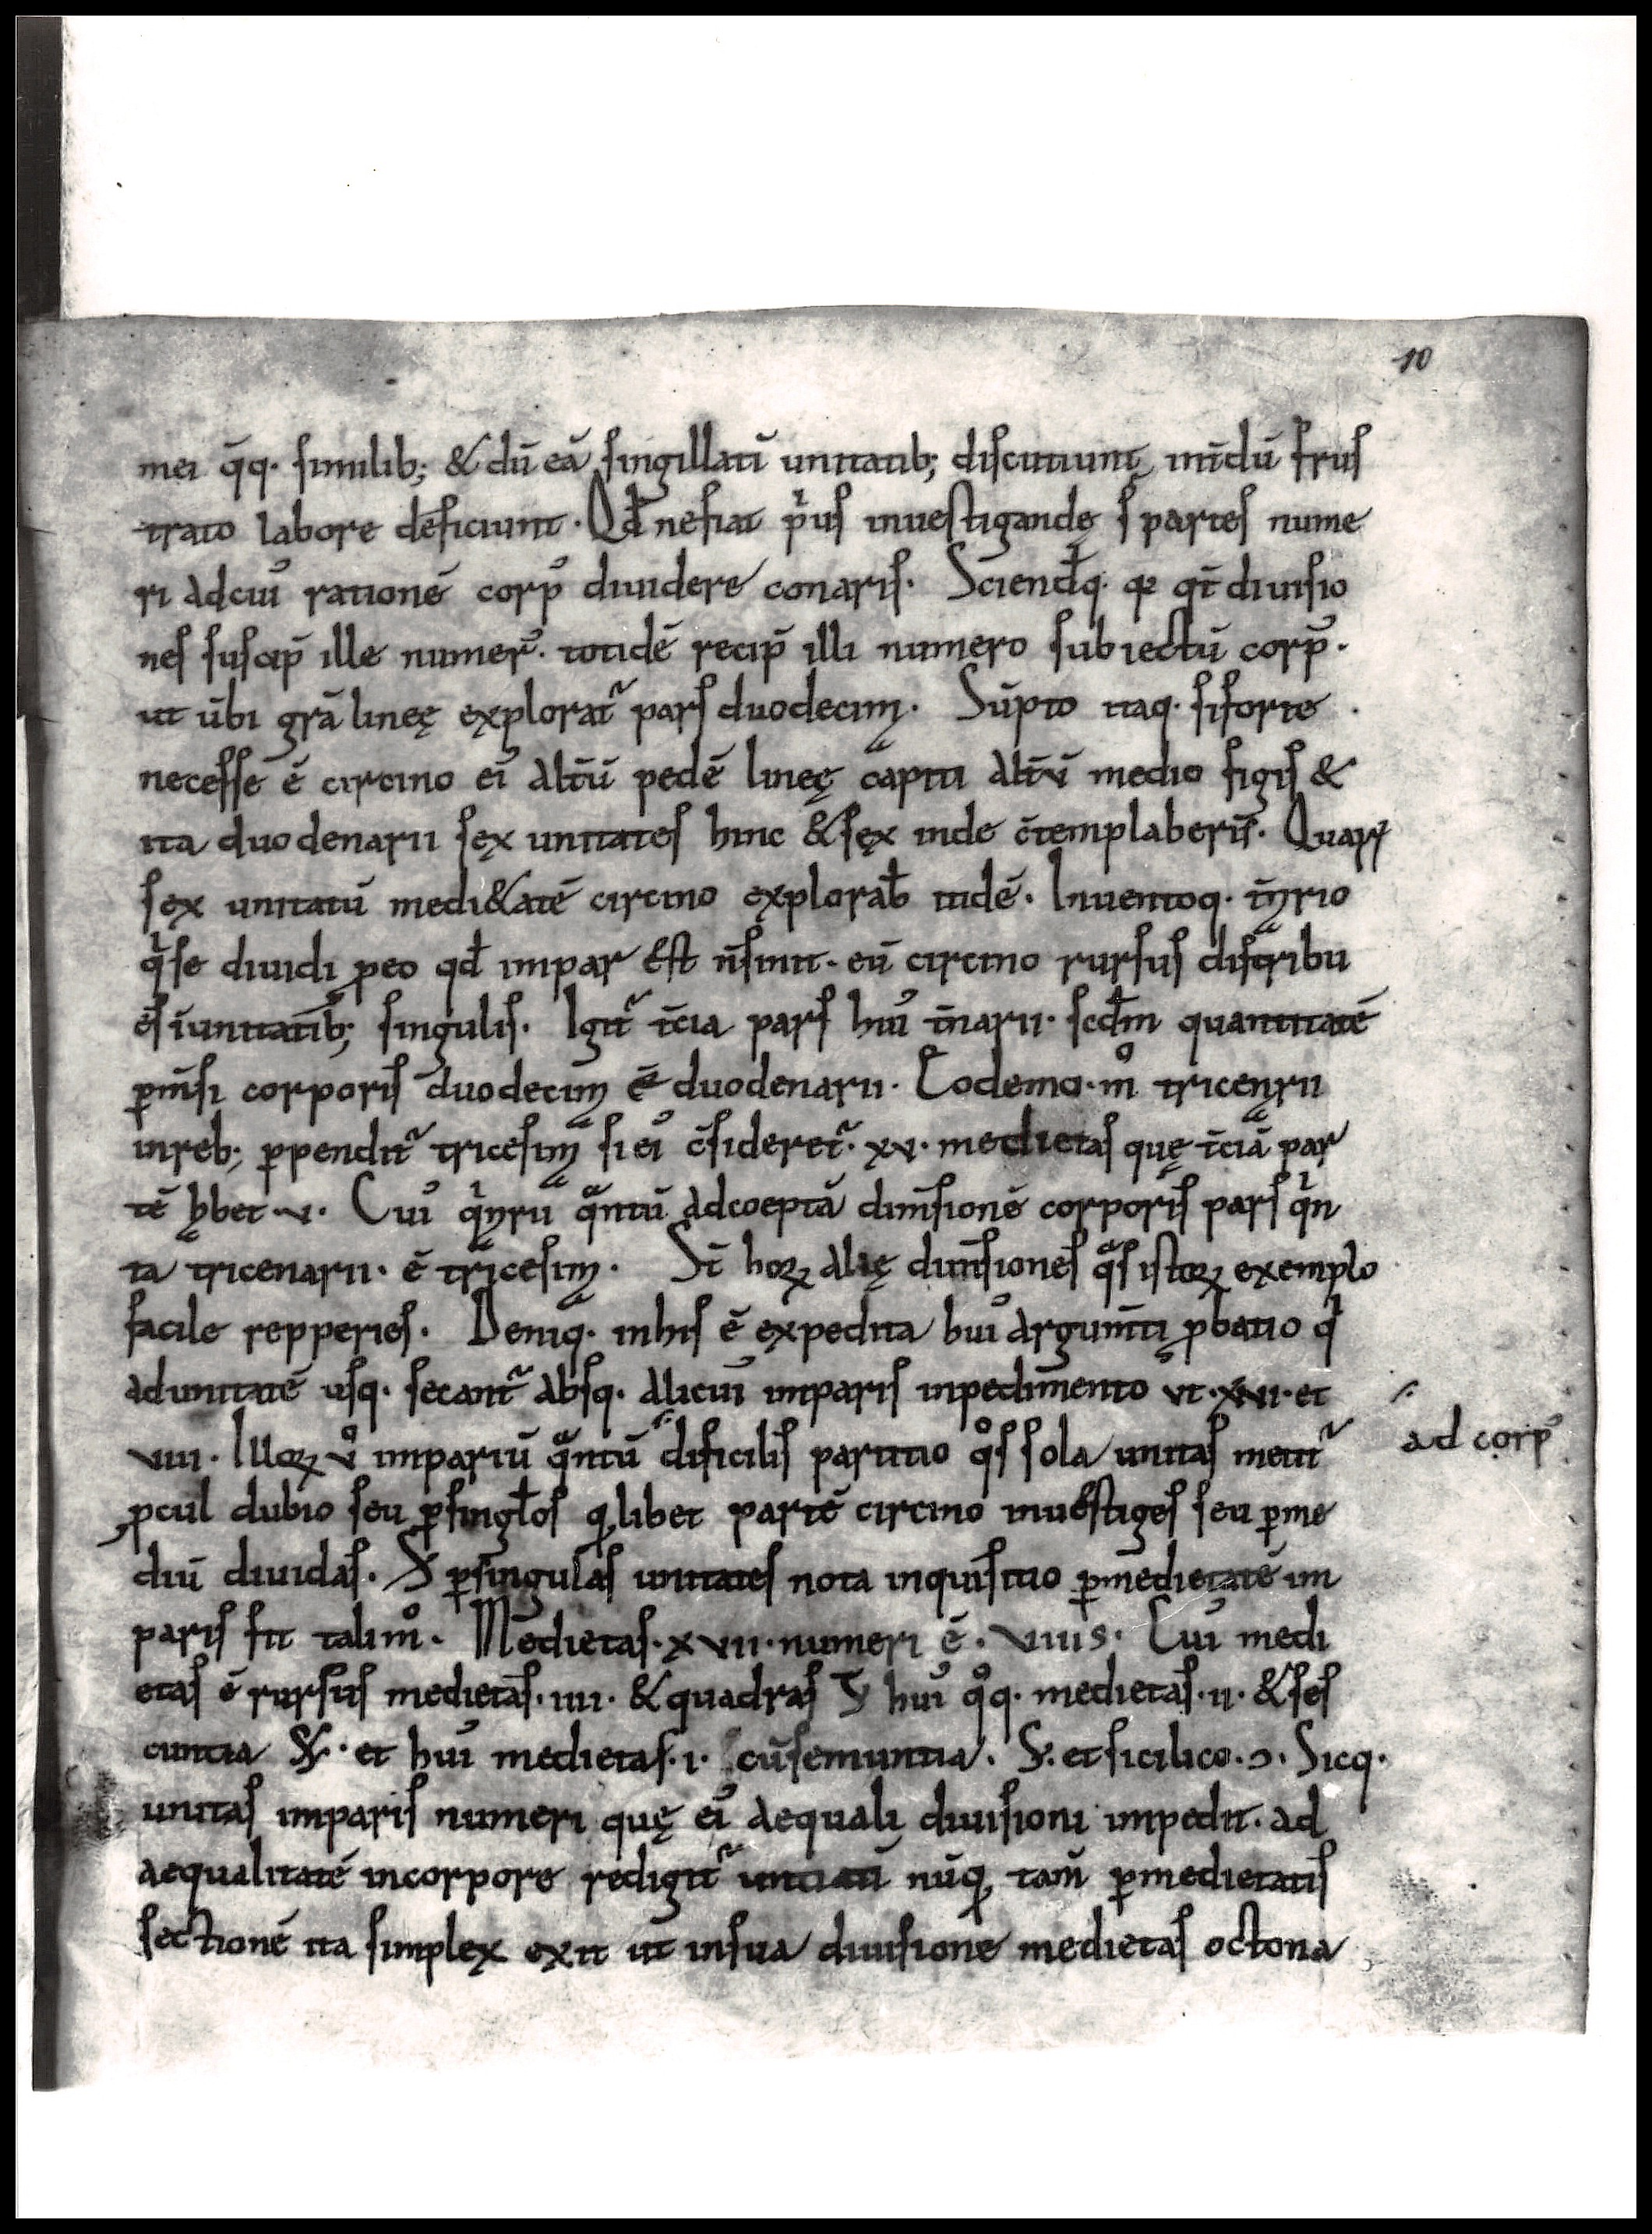 10
mei q̄q. similib; & dū eā singillatī unitatib; discutiunt int̄dū frus
trato labore deficiunt. Qđ nefiat p̓us inuestigandę s̄ partes nume
ri adcui᾽ rationē corp᾽ diuidere conaris. Sciendq̄. qꝫ qt̄ diuisio
nes suscip̄ ille numer᾽. totidē recip̄ illi numero subiectū corp᾽.
ut ubi grā lineę explorat᷑ pars duodecim. Sūpto itaq. siforte
necesse ē circino ei᾽ alt̄ū pedē lineę capiti alt̄ū medio figis &
ita duodenarii sex unitates hinc & sex inde c̄templaberis.
sex unitatū medi&atē circino explorab̄ itidē. Inuentoq.
q̓ se diuidi ꝓeo qđ impar est n̄sinit. eū circino rursus discribu
és īunitatib; singulis. Igit᷑ t̄cia pars hui᾽ t̄narii. scđm quantitatē
ꝑm̄si corporis duodecim ē duodenarii. Eodemq. m̊
inreb; ꝑpendit᷑ tricesim si ei᾽ c̄sideret᷑. xv. medietas quę t̄ciā par
tē hbet. v. Cui᾽ q̓ntū adcoeptā dim̄sionē corporis pars q̓n
ta tricenarii. ē tricesim. St̄ hoꝝ alię dim̄siones q̊s istoꝝ exemplo
facile repperies. Deniq. inhis ē expedita hui᾽ argum̄ti ꝓbatio q̓
adunitatē usq. secant᷑ absq. alicui᾽ imparis inpedim̄ento vt. xvi. et
viii. Illoꝝ v̊ impariū q̄ntū dificilis partitio q̊s sola unitas metit᷑
ad corp᾽
ꝓcul dubio seu ꝑsinglos q libet partē circino inuestiges seu ꝑme
diū diuidas. S; ꝑsingulas unitates nota inquisitio ꝑmedietatē im
paris fit talim̊. Medietas. xvii. numeri ē. viiis. Cui᾽ medi
etas ē rursus medietas. iiii. & quadras hui᾽ q̊q. medietas. ii. & ses
cuncia et hui᾽ medietas. i. cūsemuntia. et sicilico. ɔ. Sicq.
unitas imparis numeri quę ei᾽ aequali diuisioni impedit. ad
aequalitatē incorpore redigit᷑ nūq tam̄ ꝑmedietatis
sectionē ita simplex exit ut insua diuisione medietas octona